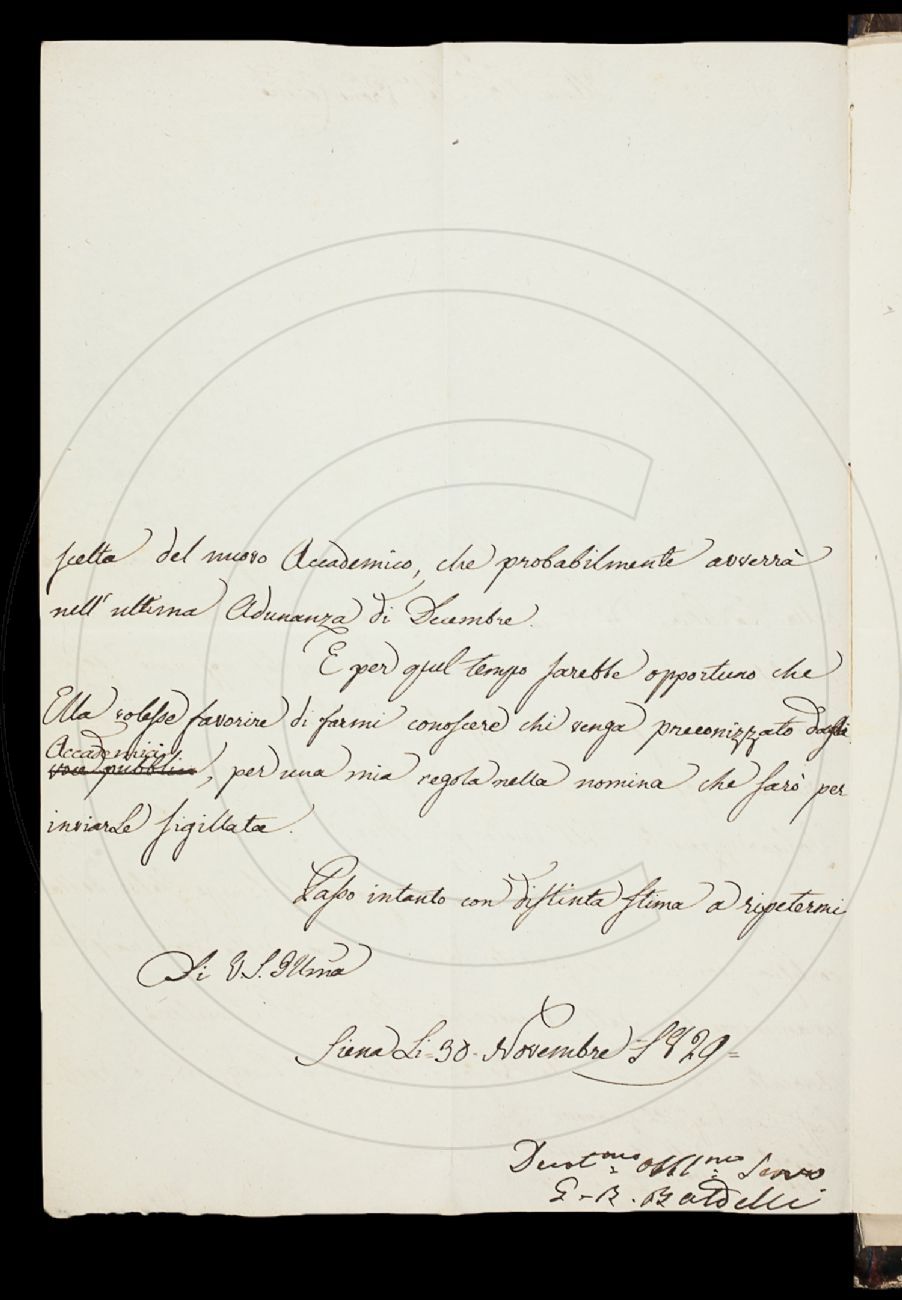 scelta del nuovo Accademico, che probabilmente avverrà
nell'ultima Adunanza di Decembre.
E per quel tempo sarebbe opportuno che
Ella volesse favorire di farmi conoscere chi venga preconizzato dagli
Accademici
voce pubblica, per una mia regola nella nomina che farò per
inviarLe sigillata.
Passo intanto con distinta stima a ripetermi
Di V. S. Illma
Siena Li 30 Novembre 1829
Devotmo obblmo Servo
B. Baldelli